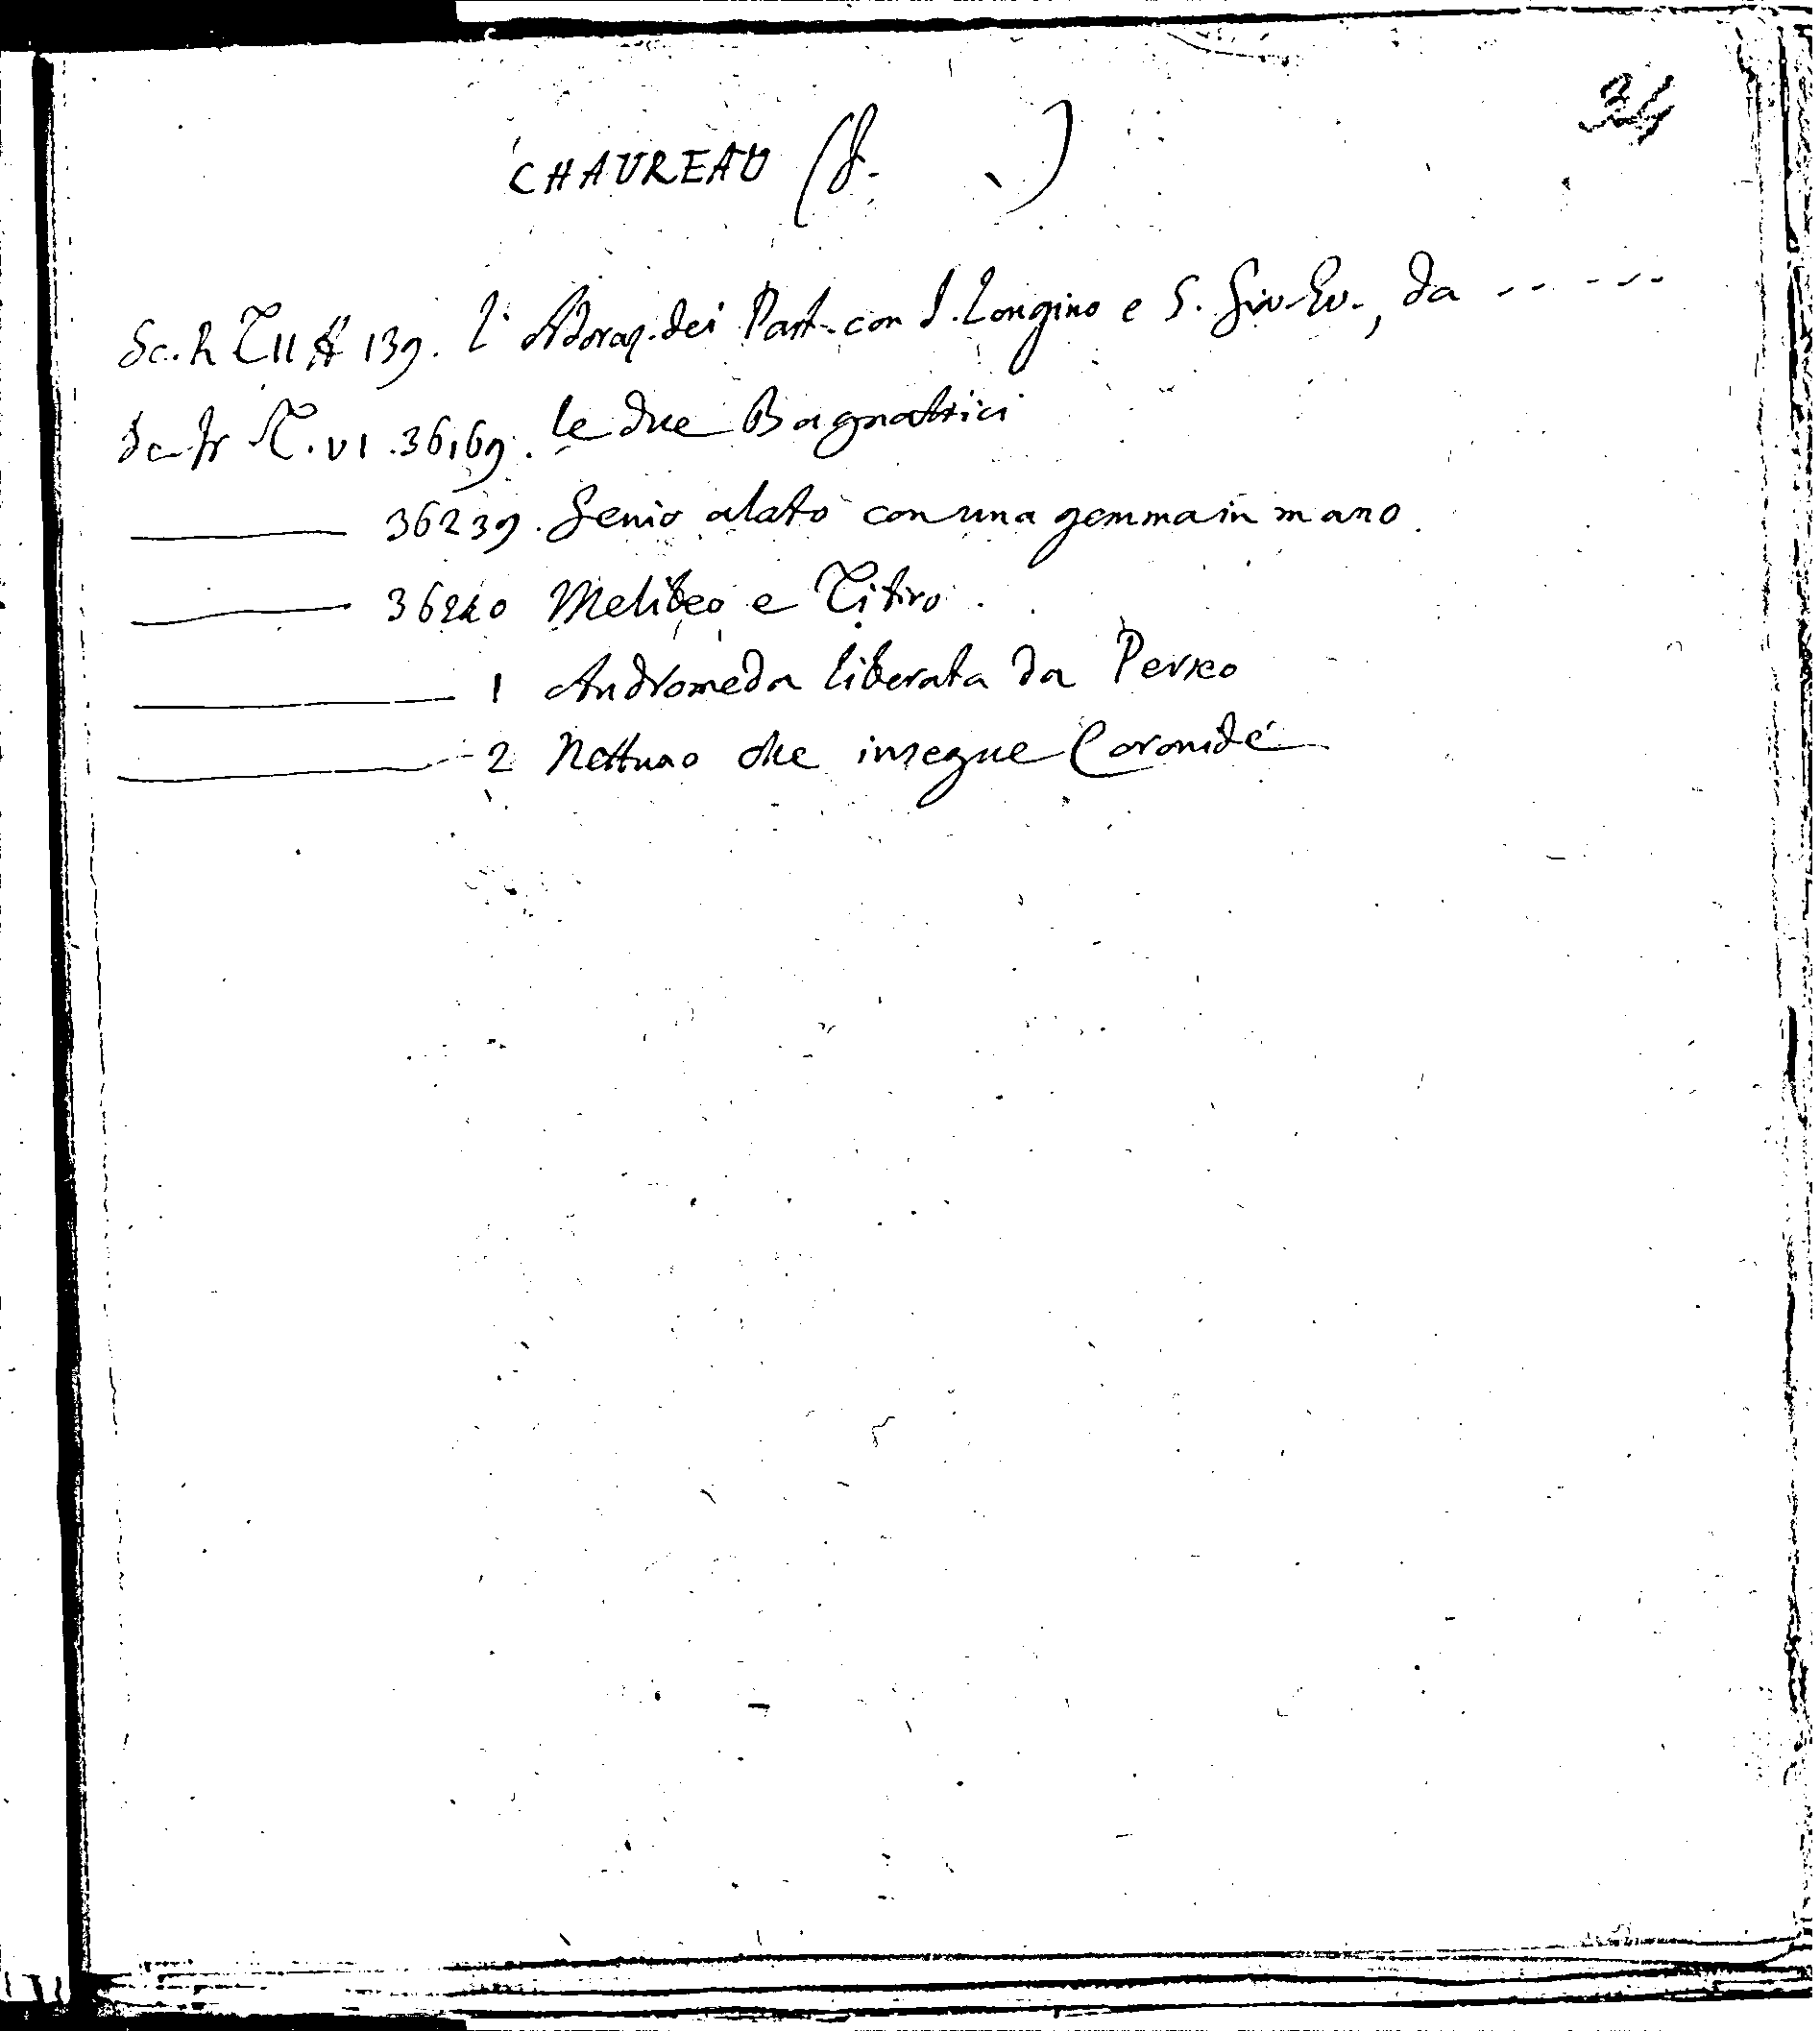 34
CHAUREAU (f. )
Sc. R T II # 139. l'Adoraz. dei Past. con S. Longino e S. Giv. Ev., da - - - - -
Sc. fr T. VI. 36169. le due Bagnatrici
36239. Genio alato con una gemma in mano.
36240 Melibeo e Titiro.
1 Andromeda liberata da Perseo
2 Nettuno che insegue Coronide